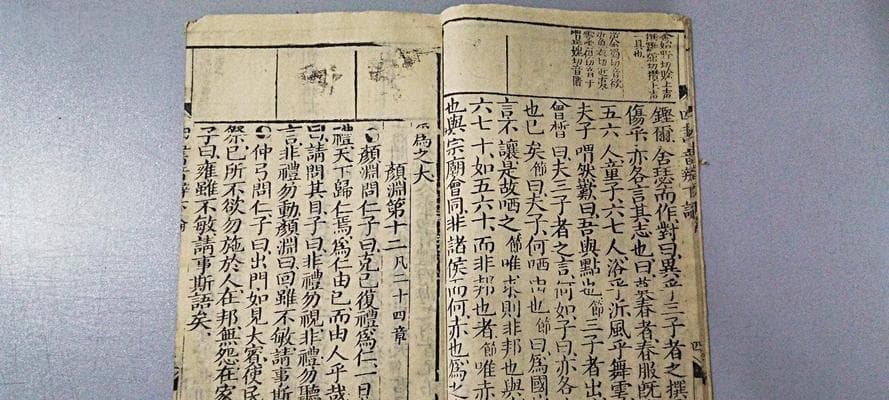 鏗爾舍瑟而作對曰異乎三子者之撰
傷乎亦各言其志也曰莫春者春服旣
五六人童子六七人浴乎沂風乎舞雩
夫子喟然歎曰吾與點也節三子者出
曾晳曰夫三子者之言何如子曰亦各
也已矣節曰夫子何哂由也節曰爲國
言不讓是故哂之節唯求則非邦也與
六七十如五六十而非邦也者節唯赤
也與宗廟會同非諸侯而何赤也爲之
爲之大
顏淵第十二凡二十四章
顏淵問仁子曰克己復禮爲仁一日
禮天下歸仁焉爲仁由己而由人乎哉
曰請問其目子曰非禮勿視非禮勿聽
言非禮勿動顏淵曰回雖不敏請事斯
仲弓問仁子曰出門如見大賓使民
祭己所不欲勿施於人在邦無怨在家
子曰雍雖不敏請事斯語矣